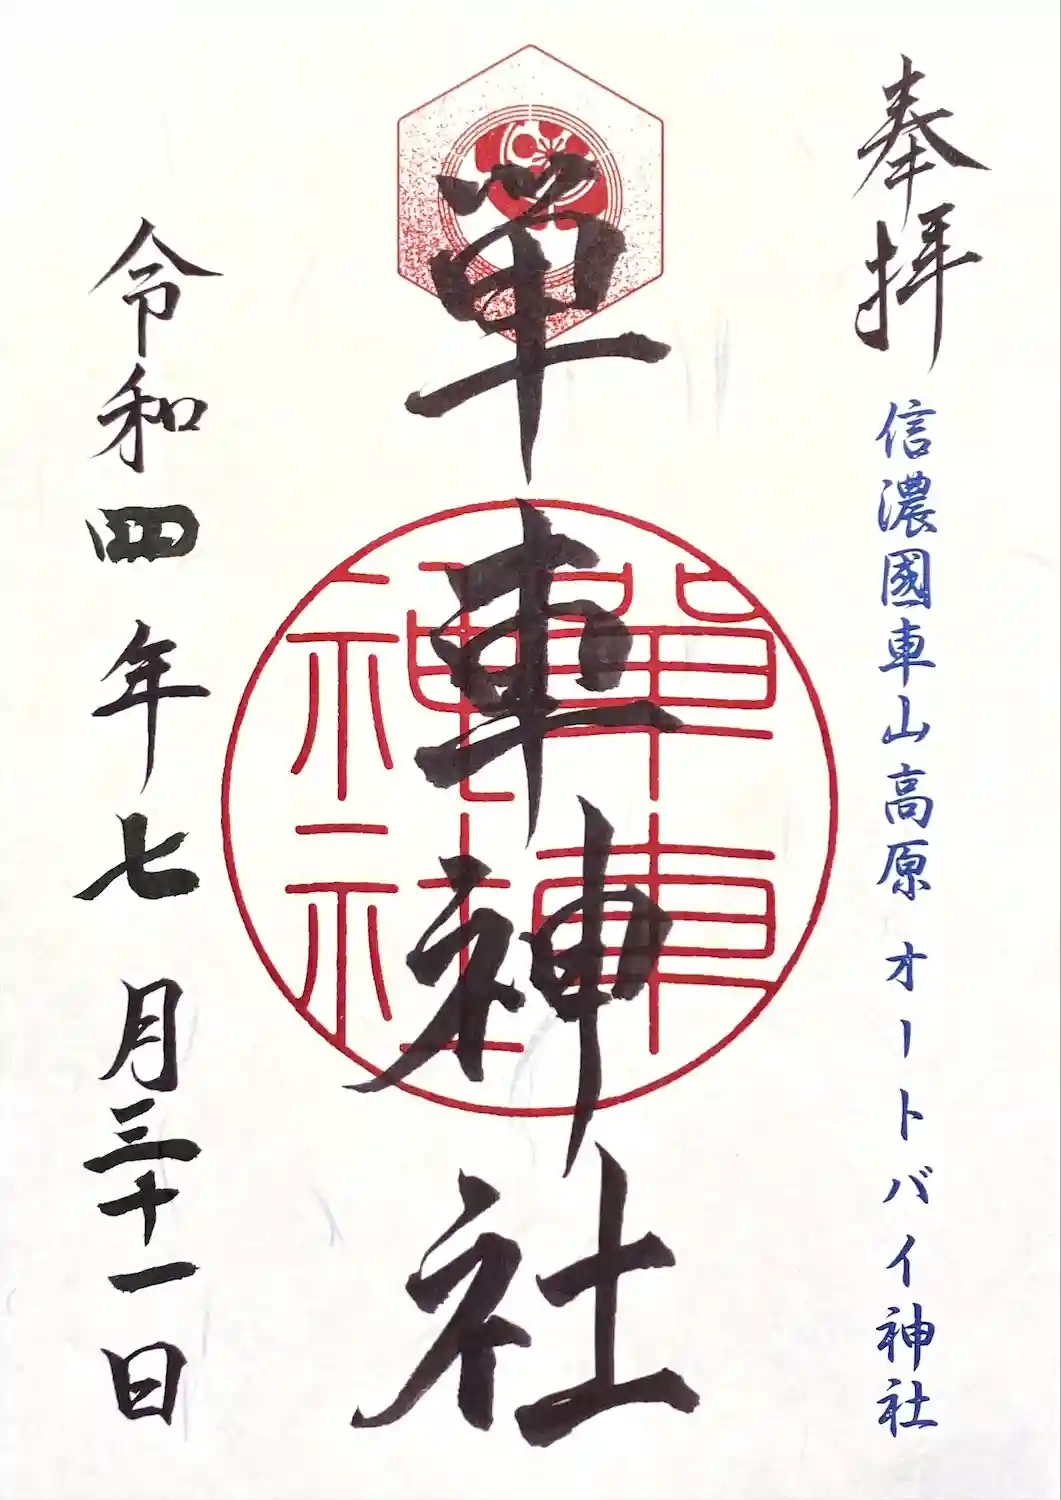 奉拝
信濃國車山高原 オートバイ神社
単車神社
單車
神社
令和四年七月三十一日